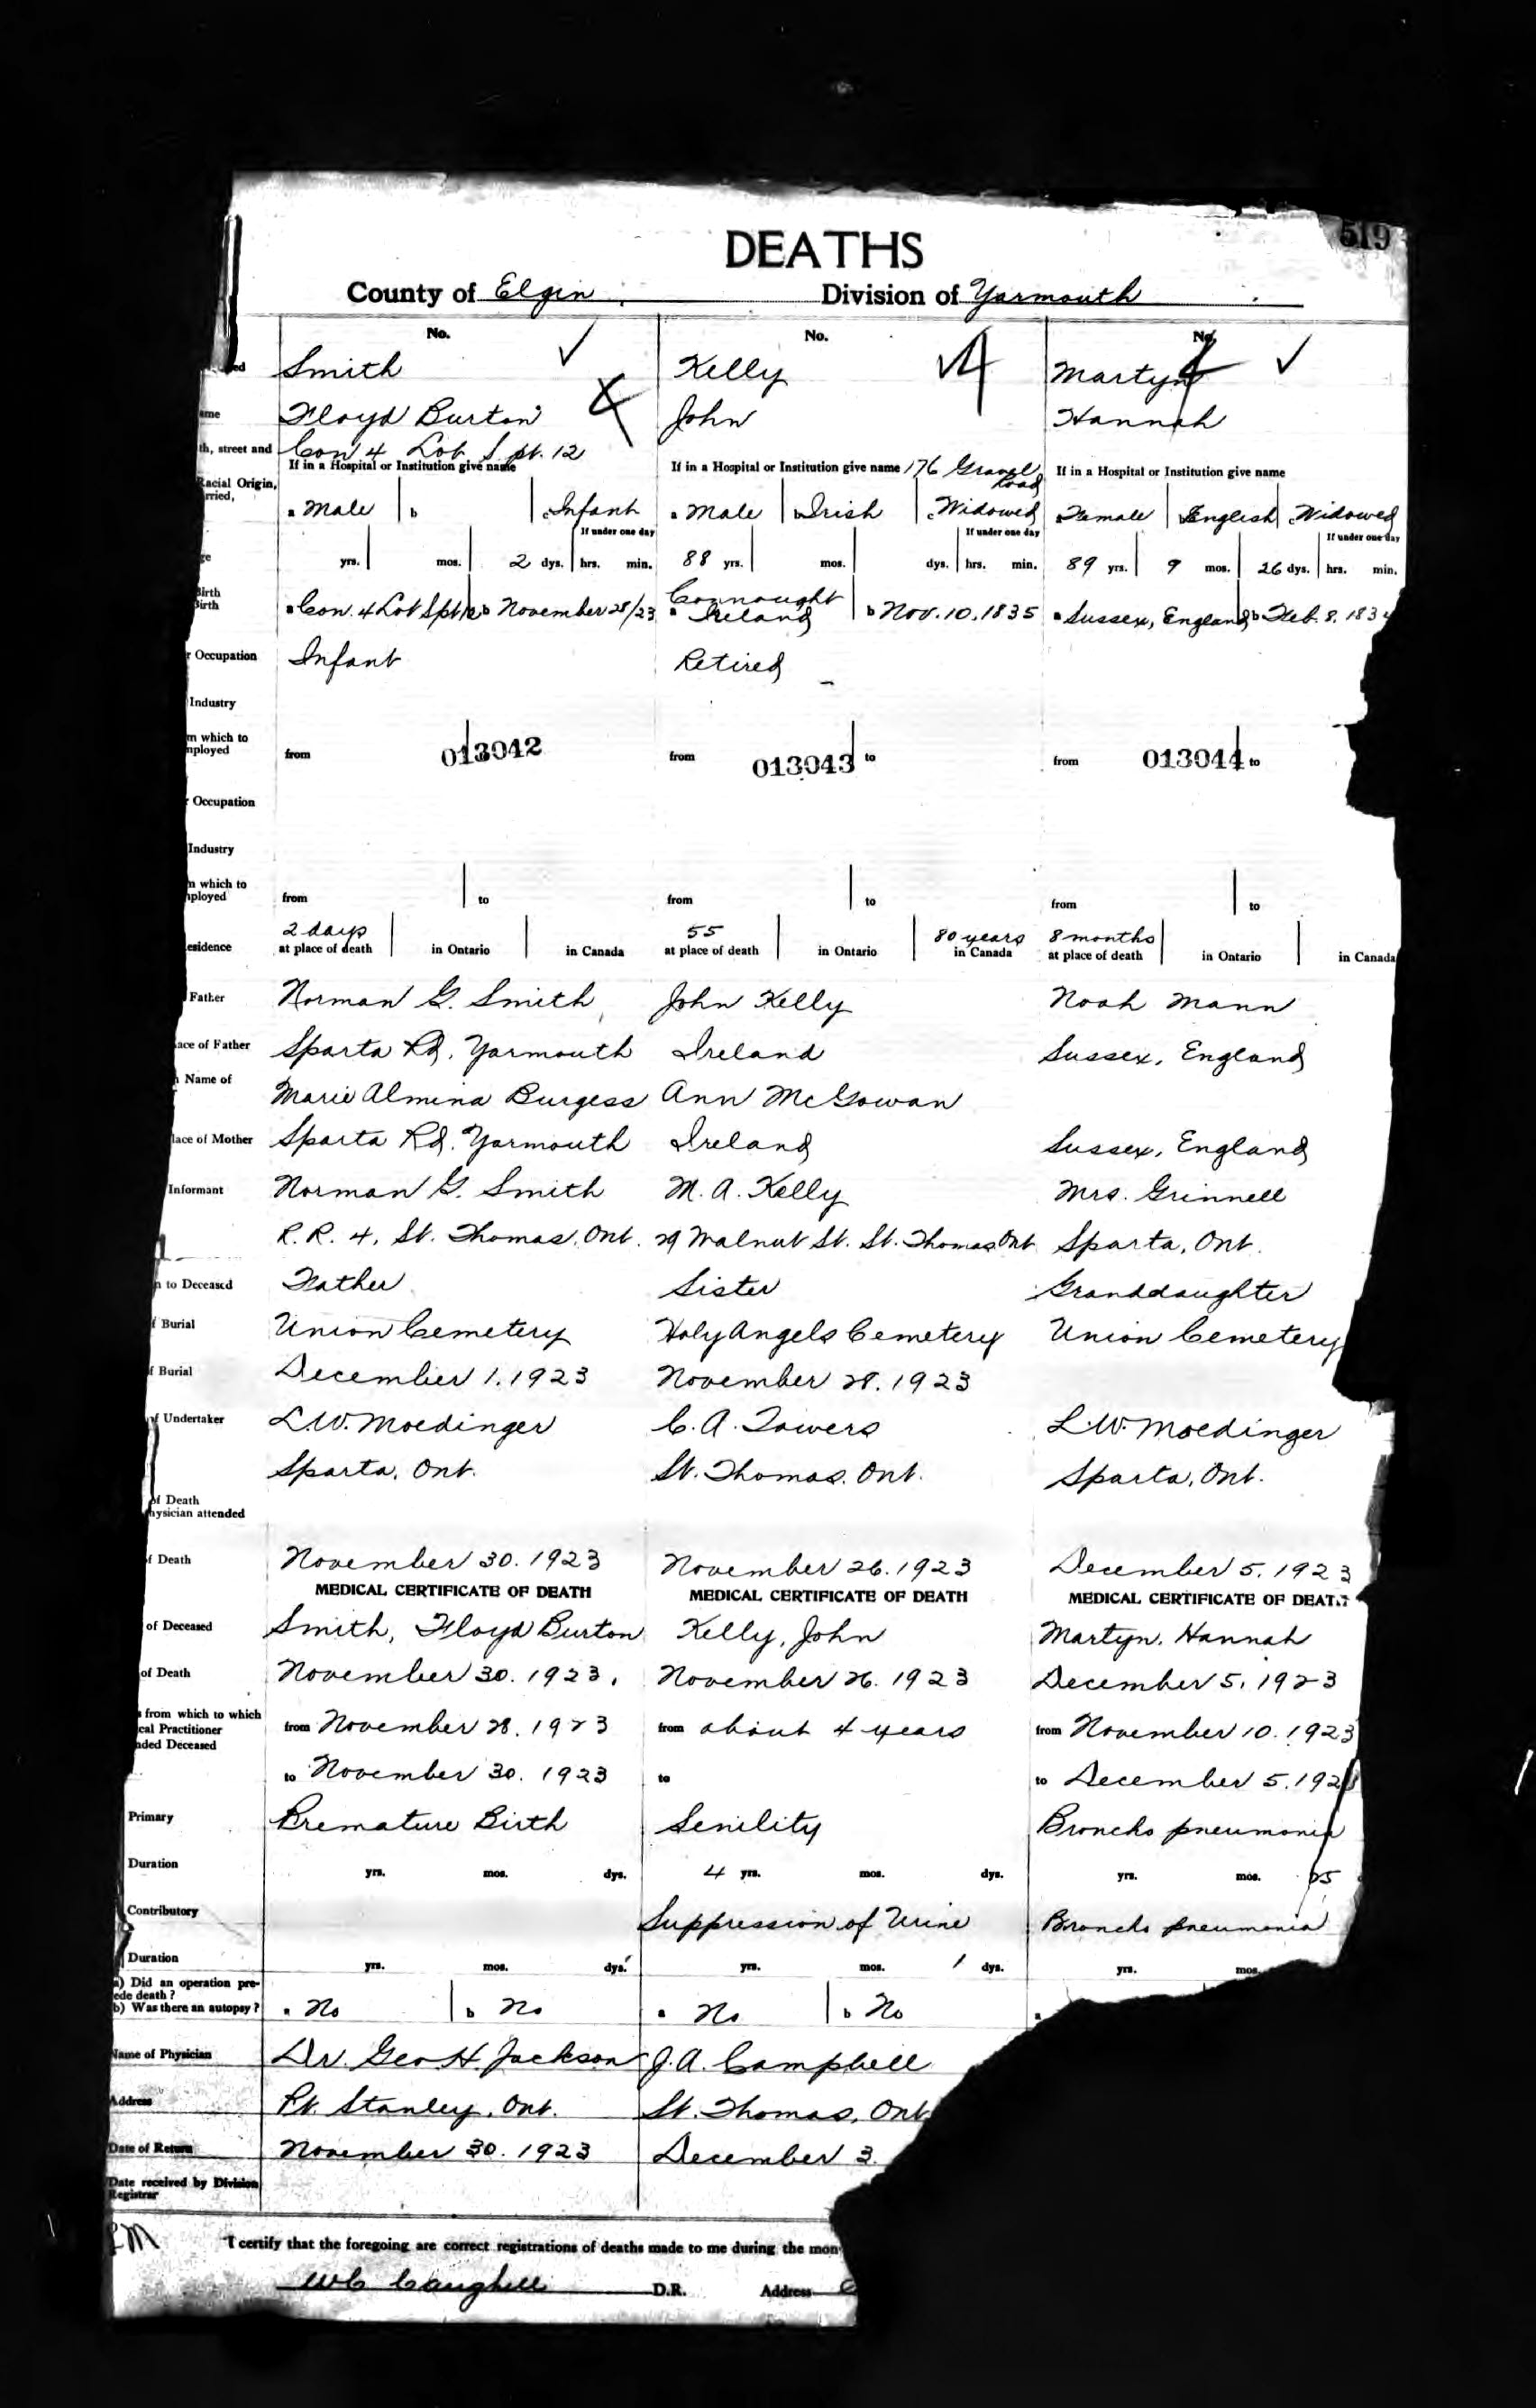 519
DEATHS
County of Elgin Division of Yarmouth
No. No. No.
Smith Kelly Martyn
Floyd Burton John Hannah
th, street and Con 4 Lot S pt. 12
If in a Hospital or Institution give name If in a Hospital or Institution give name 176 Gravel Road If in a Hospital or Institution give name
Racial Origin,
rried,
a Male b c Infant a Male b Irish c Widowed a Female b English c Widowed
If under one day If under one day If under one day
yrs. mos. 2 dys. hrs. min. 88 yrs. mos. dys. hrs. min. 89 yrs. 9 mos. 26 dys. hrs. min.
Birth
Birth
a Con. 4 Lot S pt 12 b November 28/23 a Connought Ireland b Nov. 10, 1835 a Sussex, England b Feb. 8. 1834
Occupation Infant Retired
Industry
n which to
mployed
from 013042 from 013043 to from 013044 to
Occupation
Industry
n which to
mployed
from to from to from to
2 days 55 80 years 8 months
esidence at place of death in Ontario in Canada at place of death in Ontario in Canada at place of death in Ontario in Canada
Father Norman G. Smith John Kelly Noah Mann
ace of Father Sparta Rd. Yarmouth Ireland Sussex, England
Name of Marie Almina Burgess Ann McGowan
lace of Mother Sparta Rd. Yarmouth Ireland Sussex, England
Informant Norman G. Smith M. A. Kelly Mrs. Grinnell
R. R. 4, St. Thomas, Ont. 29 Walnut St. St. Thomas Ont Sparta, Ont.
n to Deceased Father Sister Granddaughter
f Burial Union Cemetery Holy Angels Cemetery Union Cemetery
f Burial December 1. 1923 November 28. 1923
of Undertaker L.W. Moedinger C. A. Towers L.W. Moedinger
Sparta, Ont. St. Thomas, Ont. Sparta, Ont.
of Death
hysician attended
f Death November 30. 1923 November 26. 1923 December 5. 1923
MEDICAL CERTIFICATE OF DEATH MEDICAL CERTIFICATE OF DEATH MEDICAL CERTIFICATE OF DEATH
of Deceased Smith, Floyd Burton Kelly, John Martyn, Hannah
of Death November 30. 1923. November 26. 1923 December 5, 1923
from which to which
cal Practitioner
nded Deceased
from November 28. 1923 from about 4 years from November 10. 1923
to November 30. 1923 to to December 5. 1923
Primary Premature Birth Senility Broncho pneumonia
Duration yrs. mos. dys. 4 yrs. mos. dys. yrs. mos. 25
Contributory Suppression of Urine Broncho pneumonia
Duration yrs. mos. dys. yrs. mos. 1 dys. yrs. mos.
a) Did an operation pre-
ede death?
b) Was there an autopsy? a No b No a No b No a
Name of Physician Dr. Geo H. Jackson J. A. Campbell
Address Pt. Stanley, Ont. St. Thomas, Ont
Date of Return November 30. 1923 December 3.
Date received by Division
Registrar
I certify that the foregoing are correct registrations of deaths made to me during the mon
W C Caughell D.R. Address